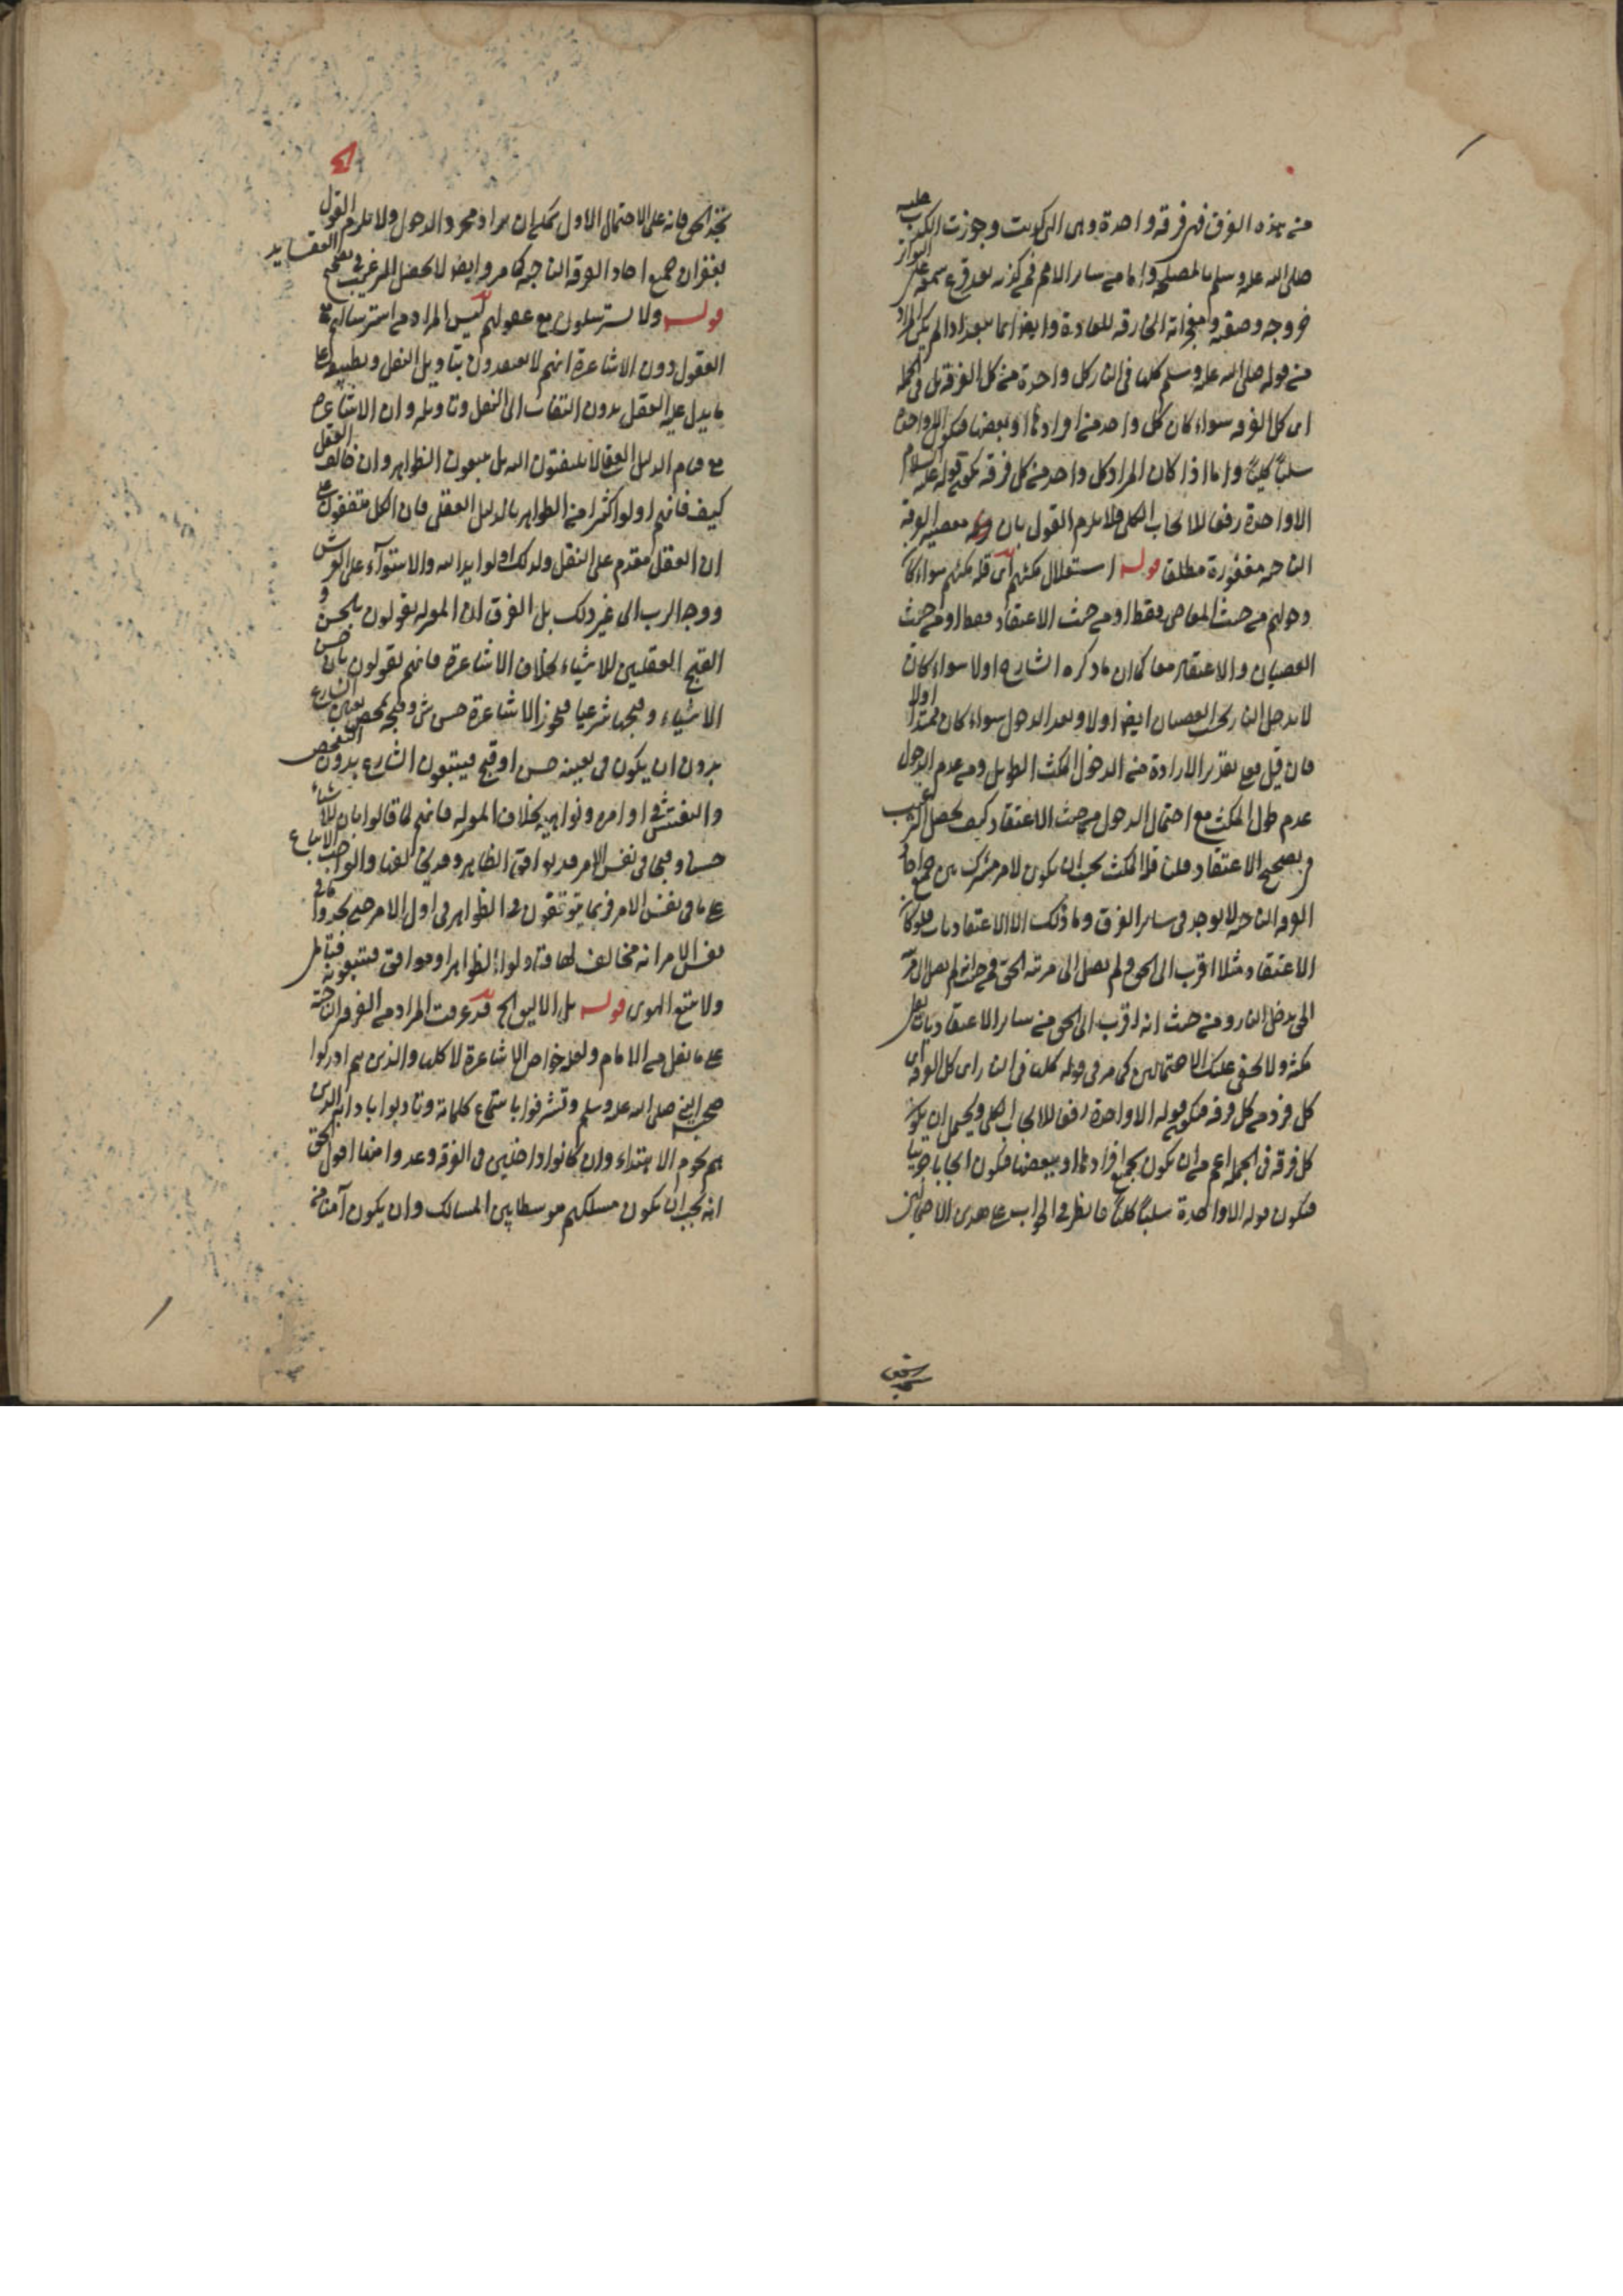 من هذه الفرق فهي فرقة واحدة وهي التي كويت وجوزت الكذب عليه
صلى الله عليه وسلم بالمصلحة واما من ساير الامم فمن كفر به بعد قرع سمعه على التواتر
خروجه وصفته ومعجزاته الخارقة للعادة وايضا انما يتعدد اذا لم يكن المراد
من قوله صلى الله عليه وسلم كلها في النار كل واحدة من كل الفرقة بل في الجملة
اى كل الفرقة سواء كان كل واحد من افرادها او بعضها فيكون الا واحدة
سلبا كليا واما اذا كان المراد كل واحد من كل فرقة يكون قوله عليه السلام
الا واحدة رفعا للايجاب الكلي فلا يلزم القول بان معصية الفرقة
الناجية مغفورة مطلقا قوله استقلال مكثهم اى قلة مكثهم سواء كان
دخولهم من حيث المعاصي فقط او من حيث الاعتقاد فقط او من حيث
العصيان والاعتقاد معا كما ان ما ذكره الشارح اولا سواء كان
لا يدخل النار بحسب العصيان ايضا اولا وبعد الدخول سواء كان ممتدا اولا
فان قيل فعلى تقدير الارادة من الدخول المكث الطويل ومن عدم الدخول
عدم طول المكث مع احتمال الدخول من حيث الاعتقاد كيف يحصل الترغيب
في تصحيح الاعتقاد قلت قلة المكث يجب ان يكون لامر مشترك بين جميع احاد
الفرقة الناجية لا يوجد في ساير الفرق وما ذلك الا الاعتقاديات فلو كان
الاعتقاد مثلا اقرب الى الحق ولم يصل الى مرتبة الحق فمن حيث انه لم يصل الى مرتبة
الحق يدخل النار ومن حيث انه اقرب الى الحق من ساير الاعتقاديات يقل
مكثه ولا يخفى عليك الاحتمالين كما مر في قوله كلها في النار اى كل الفرقة اى
كل فرد من كل فرقة فيكون قوله الا واحدة رفعا للايجاب الكلي ويحتمل ان يكون
كل فرقة في الجملة اعم من ان يكون بجميع افرادها او ببعضها فيكون ايجابا جزئيا
فيكون قوله الا واحدة سلبا كليا فانظر في الجواب على هذين الاحتمالين
تجد الحق فانه على الاحتمال الاول يمكن ان يراد مجرد الدخول ولا يلزم القول
بغفران جميع احاد الفرقة الناجية كما مر وايضا لا يحصل الترغيب في تصحيح العقايد
قوله ولا يسترسلون مع عقولهم ليس المراد من استرسالهم مع
العقول دون الاشاعرة انهم لا يتعبدون بتاويل النقل وتطبيقه على
ما يدل عليه العقل بدون التفات الى النقل وتاويله وان الاشاعرة
مع قيام الدليل العقلي لا يلتفتون اليه بل يتبعون الظواهر وان خالف العقل
كيف فانهم اولوا كثيرا من الظواهر بالدليل العقلي فان الكل متفقون على
ان العقل مقدم على النقل ولذلك اولوا يد الله والاستوآء على العرش
ووجه الرب الى غير ذلك بل الفرق ان المعتزلة يقولون بالحسن و
القبح العقليين للاشياء بخلاف الاشاعرة فانهم يقولون بان حسن
الاشياء وقبحها شرعيا فيجوز الاشاعرة حسن شئ وقبحه بمحض تعيين الشارع
بدون ان يكون في تعيينه حسن او قبح فيتبعون الشارع بدون التفحص
والتفتيش في اوامره ونواهيه بخلاف المعتزلة فانهم لما قالوا بان للاشياء
حسنا وقبحا في نفس الامر قد يوافق الظاهر وقد يخالفها والواجب الاتباع
على ما في نفس الامر فربما يتوقفون في الظواهر في اول الامر حتى يجدوا ما في
نفس الامر انه مخالف لها فتاولوا الظواهر او موافق فيتبعونه فتامل
ولا تتبع الهوى قوله بل الاليق الخ قد عرفت المراد من الفرقة الناجية
على ما نقل من الامام ولعله خواص الاشاعرة لا كلها والذين هم ادركوا
صحبة النبي صلى الله عليه وسلم وتشرفوا باستماع كلماته وتادبوا بادابه الذين
هم نجوم الاهتداء وان كانوا داخلين في الفرقة وعدوا منها اقول الحق
انه يجب ان يكون مسلكهم متوسطا بين المسالك وان يكون آمنا من